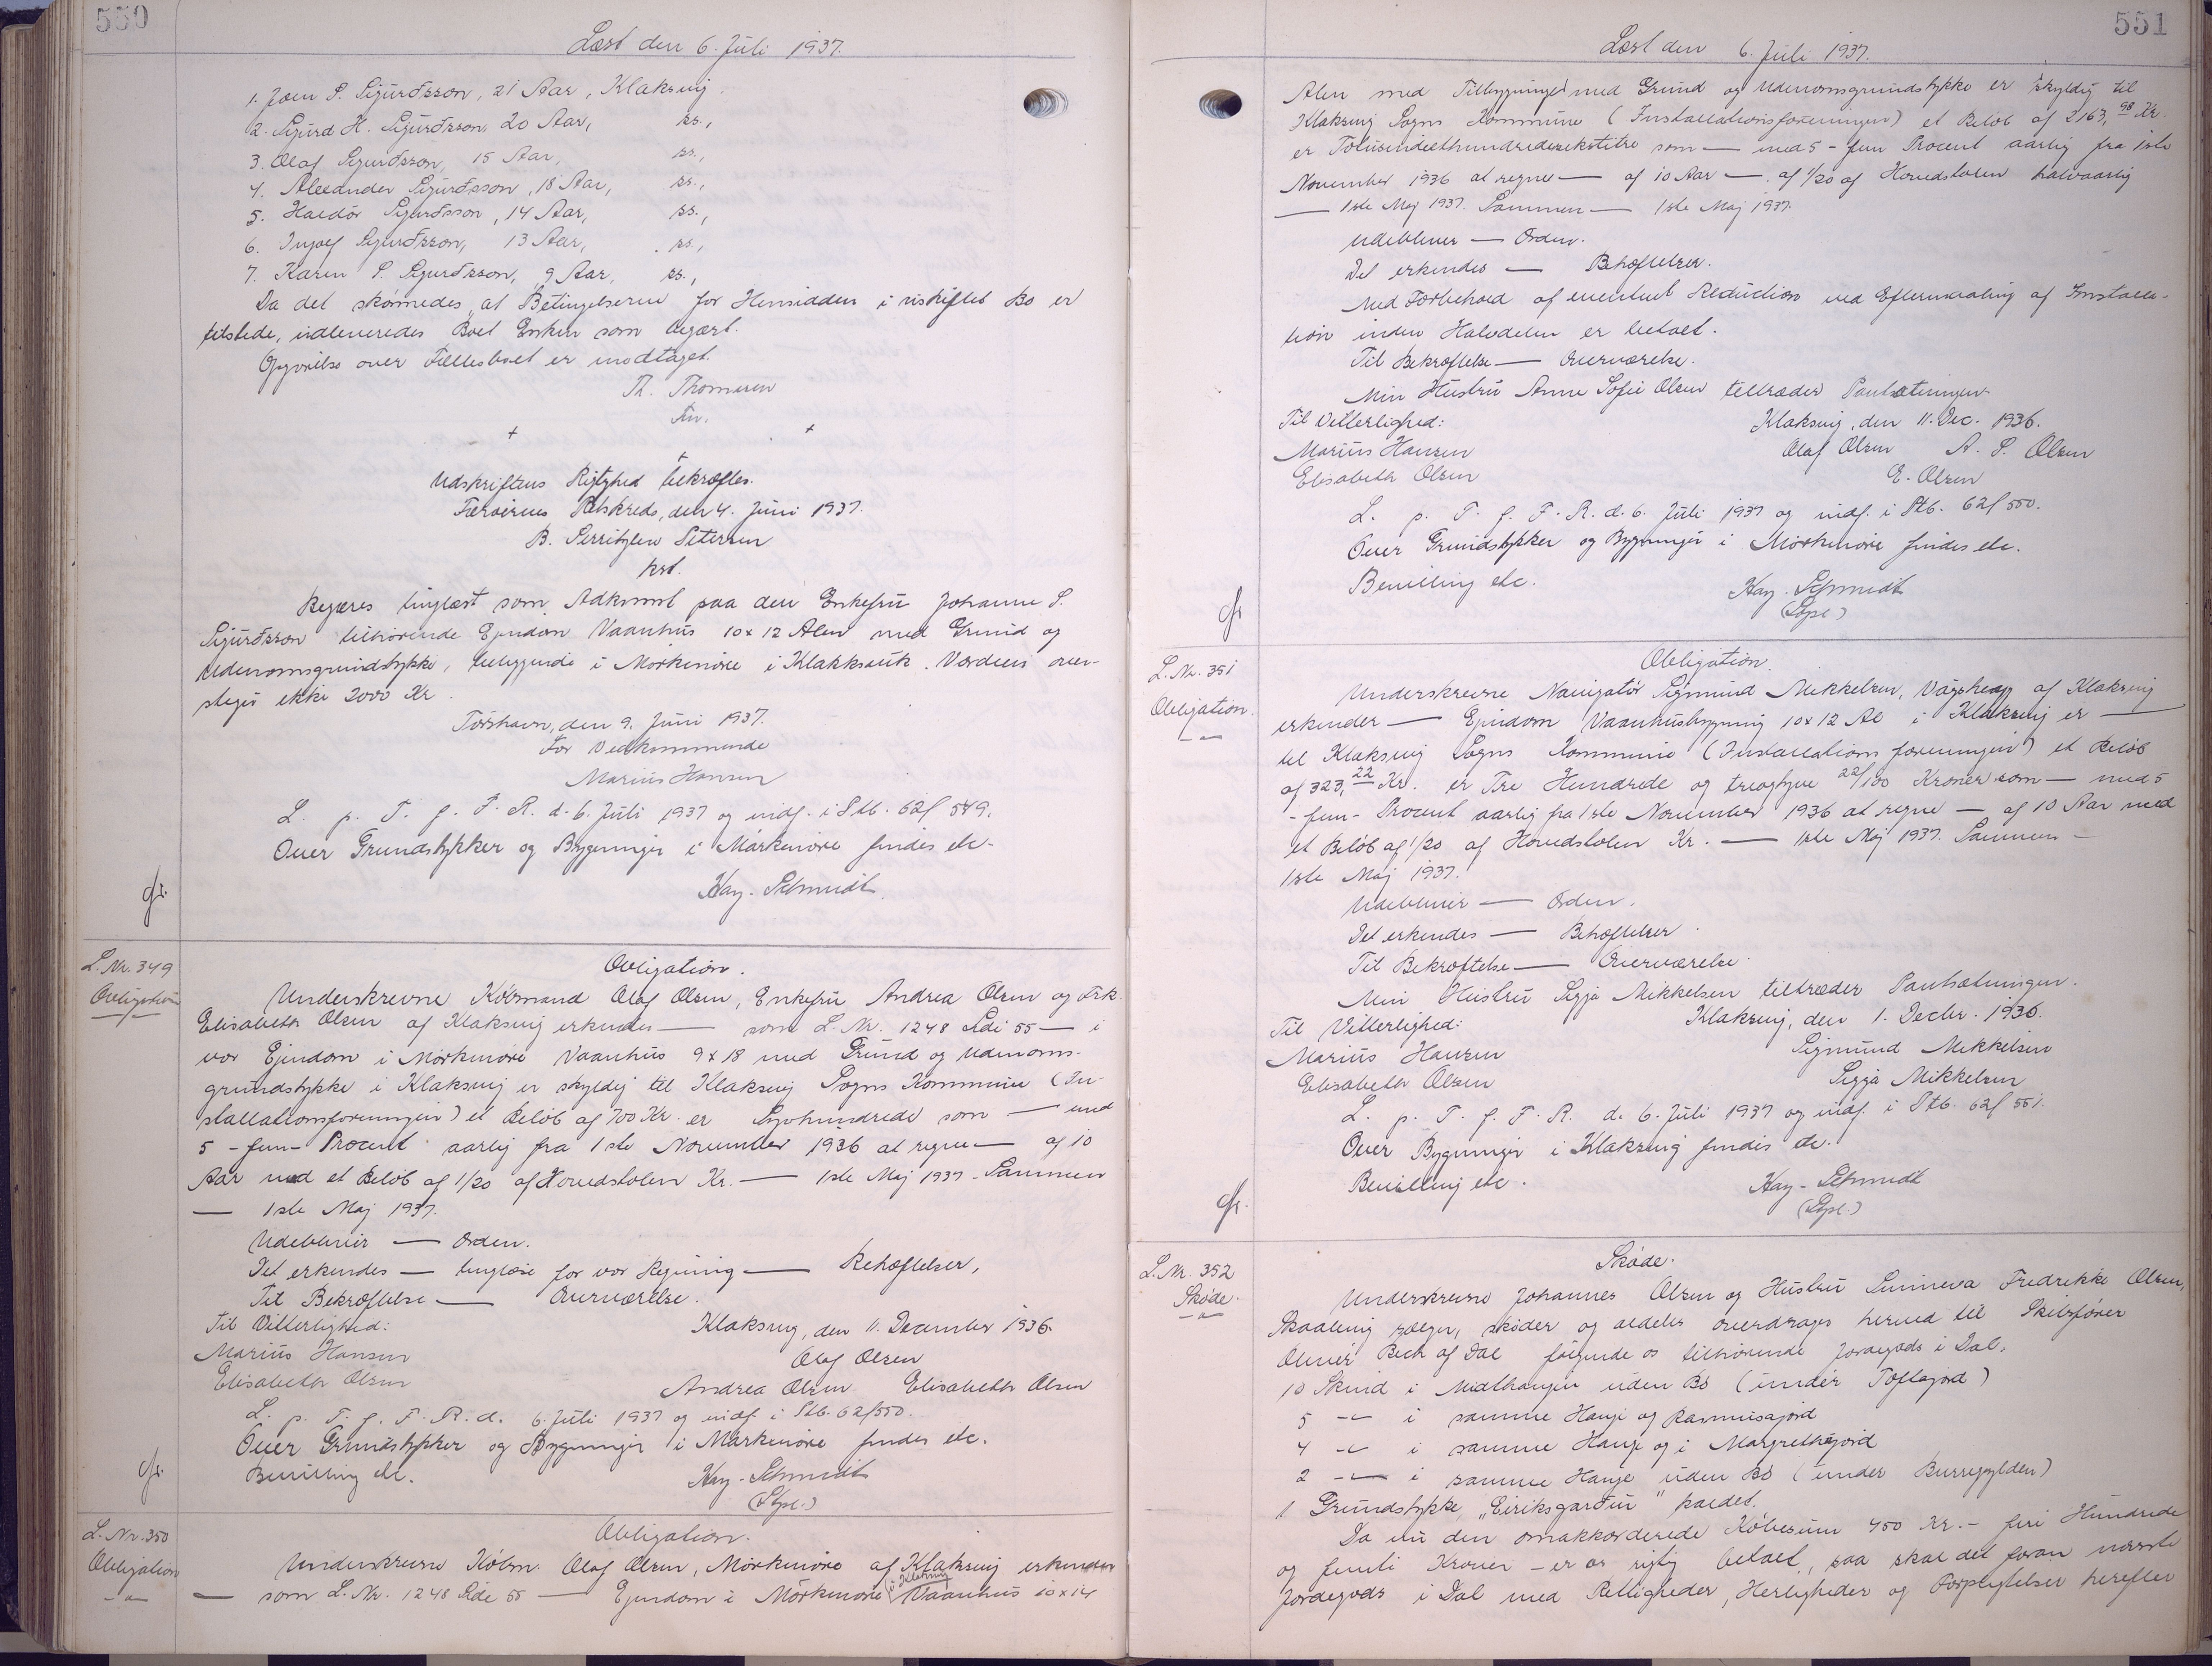 550
Læst den 6. Juli 1937.
1. Joen P. Sigurðsson, 21 Aar, Klaksvig.
2. Sigurd H. Sigurðsson, 20 Aar, ss.,
3. Olaf Sigurðsson, 15 Aar, ss.,
4. Alexander Sigurðsson, 18 Aar, ss.,
5. Haldór Sigurðsson, 14 Aar, ss.,
6. Ingolf Sigurðsson, 13 Aar, ss.,
7. Karin S. Sigurðsson, 9 Aar, ss.,
Da det skønnedes, at Betingelserne for Hensidden i uskiftet Bo er
tilstede, udleveredes Boet Enken som begært.
Opgørelse over Fællesboet er modtaget.
Th. Thomsen
Fm.
Udskriftens Rigtighed bekræftes.
Færøernes Retskreds, den 4. Juni 1937.
B. Petersen
kst.
Begæres tinglæst som Adkomst paa den Enkefru Johanne S.
Sigurðsson tilhørende Ejendom Vaanhus 10 x 12 Alen med Grund og
Udenomsgrundstykke, beliggende i Mörkinöre i Klakksvik. Værdien over-
stiger ikke 2000 Kr.
Torshavn, den 9. Juni 1937.
For Vedkommende
Marius Hansen
L. p. T. f. F. R. d. 6. Juli 1937 og indf. i Ptb. 62f 549.
Over Grundstykker og Bygninger i Mörkinöre findes etc.
Kay-Schmidt
L. Nr. 349
Obligation
Obligation.
Underskrevne Købmand Olaf Olsen, Enkefru Andrea Olsen og Frk.
Elisabeth Olsen af Klaksvig erkender — som L. Nr. 1248 Side 55 — i
vor Ejendom i Mörkinöre Vaanhus 9 x 18 med Grund og Udenoms-
grundstykke i Klaksvig er skyldig til Klaksvig Sogns Kommune (In-
stallationsforeningen) et Beløb af 700 Kr. er Syvhundrede som — med
5 - fem - Procent aarlig fra 1ste November 1936 at regne — af 10
Aar med et Beløb af 1/20 af Hovedstolen Kr. — 1ste Maj 1937 - Sammen
— 1ste Maj 1937.
Udebliver — Orden.
Det erkendes — tinglæse for vor Regning — Behæftelser,
Til Bekræftelse — Overværelse.
Til Vitterlighed: Klaksvig, den 11. December 1936.
Marius Hansen Olaf Olsen
Elisabeth Olsen Andrea Olsen Elisabeth Olsen
L. p. T. f. F. R. d. 6. Juli 1937 og indf. i Ptb. 62f550.
Over Grundstykker og Bygninger i Mörkinöre findes etc.
Bevilling etc. Kay-Schmidt
(Stpl.)
L. Nr. 350
Obligation
Obligation.
Underskrevne Købm. Olaf Olsen, Mörkinöre af Klaksvig erkender
— som L. Nr. 1248 Side 55 — Ejendom i Mörkinöre i Klaksvig Vaanhus 10 x 14
551
Læst den 6. Juli 1937.
Alen med Tilbygninger med Grund og Udenomsgrundstykke er skyldig til
Klaksvig Sogns Kommune (Installationsforeningen) et Beløb af 2163,98 Kr.
er Totusindeethundredesekstitre som — med 5 - fem Procent aarlig fra 1ste
November 1936 at regne — af 10 Aar — af 1/20 af Hovedstolen halvaarlig
— 1ste Maj 1937. Sammen — 1ste Maj 1937.
Udebliver — Orden.
Det erkendes — Behæftelser.
Med Forbehold af eventuel Reduction ved Eftermaaling af Installa-
tion inden Halvdelen er betalt.
Til Bekræftelse — Overværelse.
Min Hustru Anne Sofie Olsen tiltræder Pantsætningen.
Til Vitterlighed: Klaksvig, den 11. Dec. 1936.
Marius Hansen Olaf Olsen A. S. Olsen
Elisabeth Olsen E. Olsen
L. p. T. f. F. R. d. 6. Juli 1937 og indf. i Ptb. 62f 550.
Over Grundstykker og Bygninger i Mörkinöre findes etc.
Bevilling etc. Kay-Schmidt
(Stpl.)
L. Nr. 351
Obligation.
Obligation.
Underskrevne Navigatör Sigmund Mikkelsen, Vágsheyg af Klaksvig
erkender — Ejendom Vaanhusbygning 10 x 12 Al i Klaksvig er —
til Klaksvig Sogns Kommune (Installationsforeningen) et Beløb
af 323,22 Kr. er Tre Hundrede og treogtyve 22/100 Kroner som — med 5
- fem - Procent aarlig fra 1ste November 1936 at regne — af 10 Aar med
et Beløb af 1/20 af Hovedstolen Kr. — 1ste Maj 1937. Sammen —
1ste Maj 1937.
Udebliver — Orden.
Det erkendes — Behæftelser.
Til Bekræftelse — Overværelse.
Min Hustru Siggja Mikkelsen tiltræder Pantsætningen.
Til Vitterlighed: Klaksvig, den 1. Decbr. 1936.
Marius Hansen Sigmund Mikkelsen
Elisabeth Olsen Siggja Mikkelsen
L. p. T. f. F. R. d. 6. Juli 1937 og indf. i Ptb. 62f 551.
Over Bygninger i Klaksvig findes etc.
Bevilling etc. Kay-Schmidt
(Stpl.)
L. Nr. 352
Skøde.
Skøde.
Underskrevne Johannes Olsen og Hustru Sunneva Fredrikke Olsen,
Skaalevig sælger, skøder og aldeles overdrager herved til Skibsfører
Oliver Bech af Dal følgende os tilhørende Jordegods i Dal,
10 Skind i Midthaugen uden Bø (under Toftajørd)
5 -"- i samme Hauge og Rasmusajørd
4 -"- i samme Hauge og i Margrethajørd
2 -"- i samme Hauge uden Bø (under )
1 Grundstykke "Eiriksgarður" kaldet.
Da nu den omakkorderede Købesum 450 Kr. - fire Hundrede
og femti Kroner - er os rigtig betalt, saa skal det foran nævnte
Jordegods i Dal med Rettigheder, Herligheder og Forpligtelser herefter